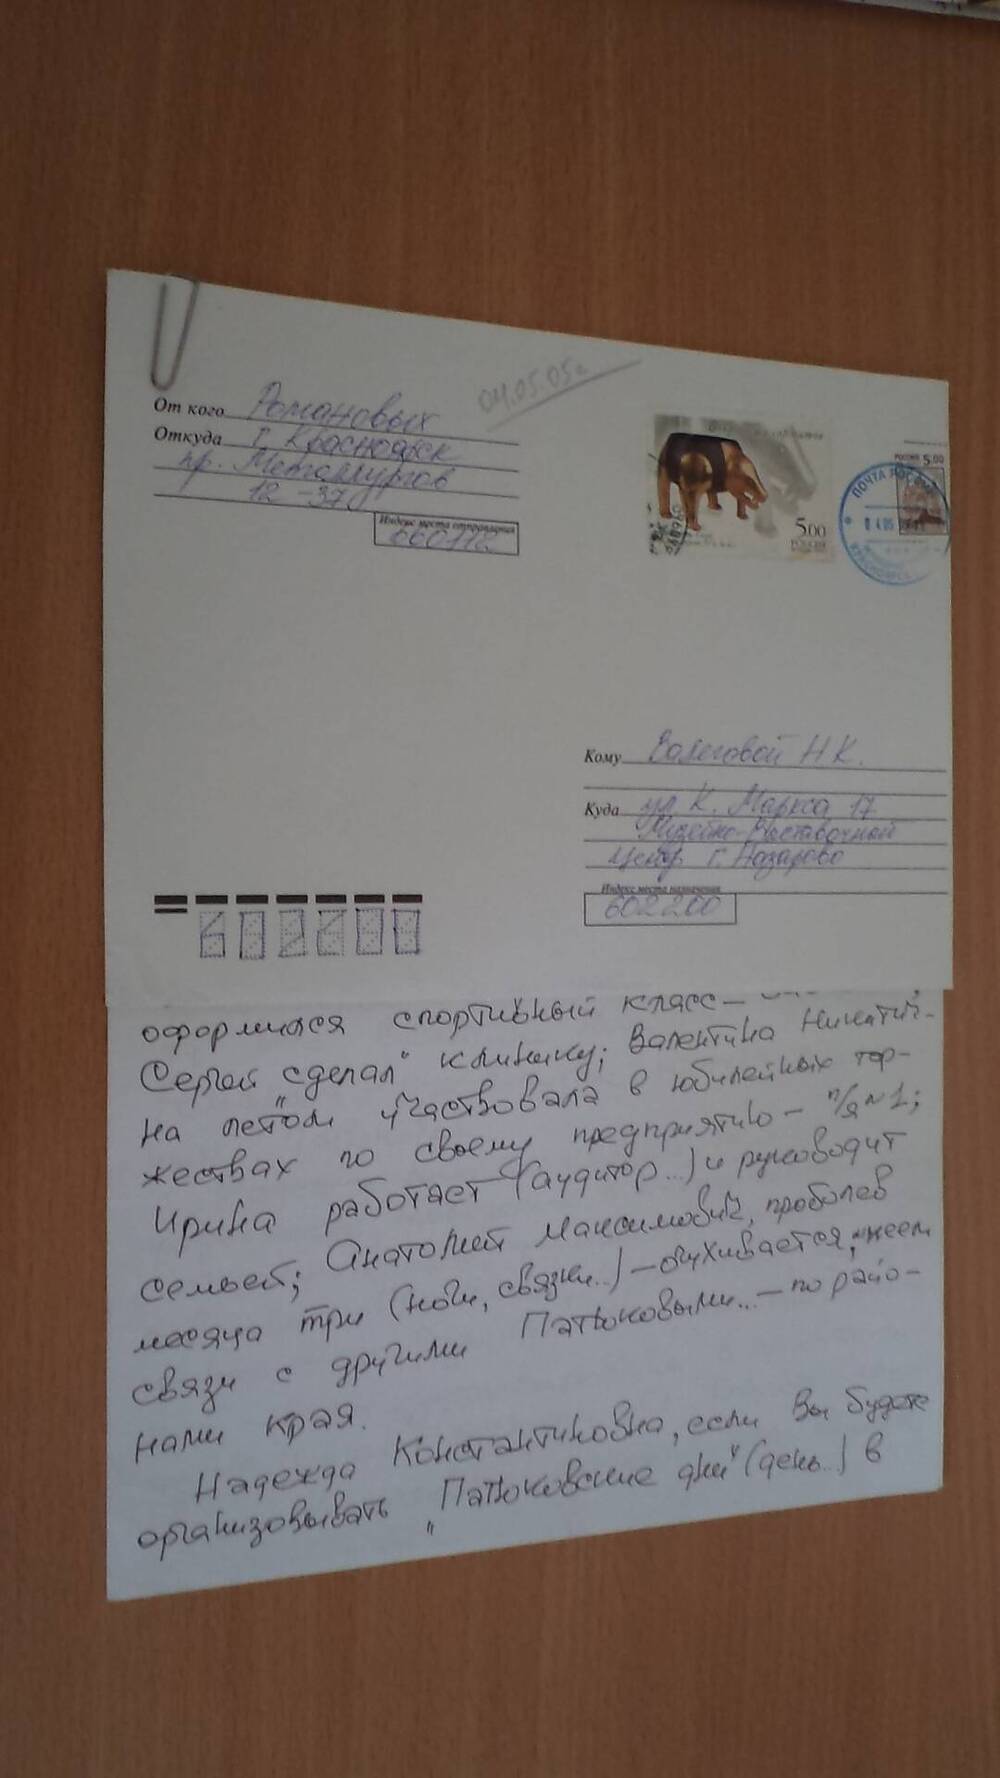 04.05.05г
От кого Романовых
Откуда г. Красноярск
пр. Металлургов
12-37
Индекс места отправления
660112
5.00
РОССИЯ
РОССИЯ 5.00
ПОЧТА РОССИИ
КРАСНОЯРСК
Кому Валеговой Н.К.
Куда ул К. Маркса 17
Музейно-Выставочный
Центр г. Назарово
Индекс места назначения
602200
оформился спортивный класс-
Сергей "сделал" клинику; Валентина Никити-
на летом участвовала в юбилейных тор-
жествах по своему предприятию - п/я №1;
Ирина работает (аудитор...) и руководит
семьёй; Анатолий Максимович, проболев
месяца три (ноги, связки...) - очухивается, имеем
связи с другими Патюковыми... - по райо-
нами края.
Надежда Константиновна, если Вы будете
организовывать "Патюковские дни" (день...) в